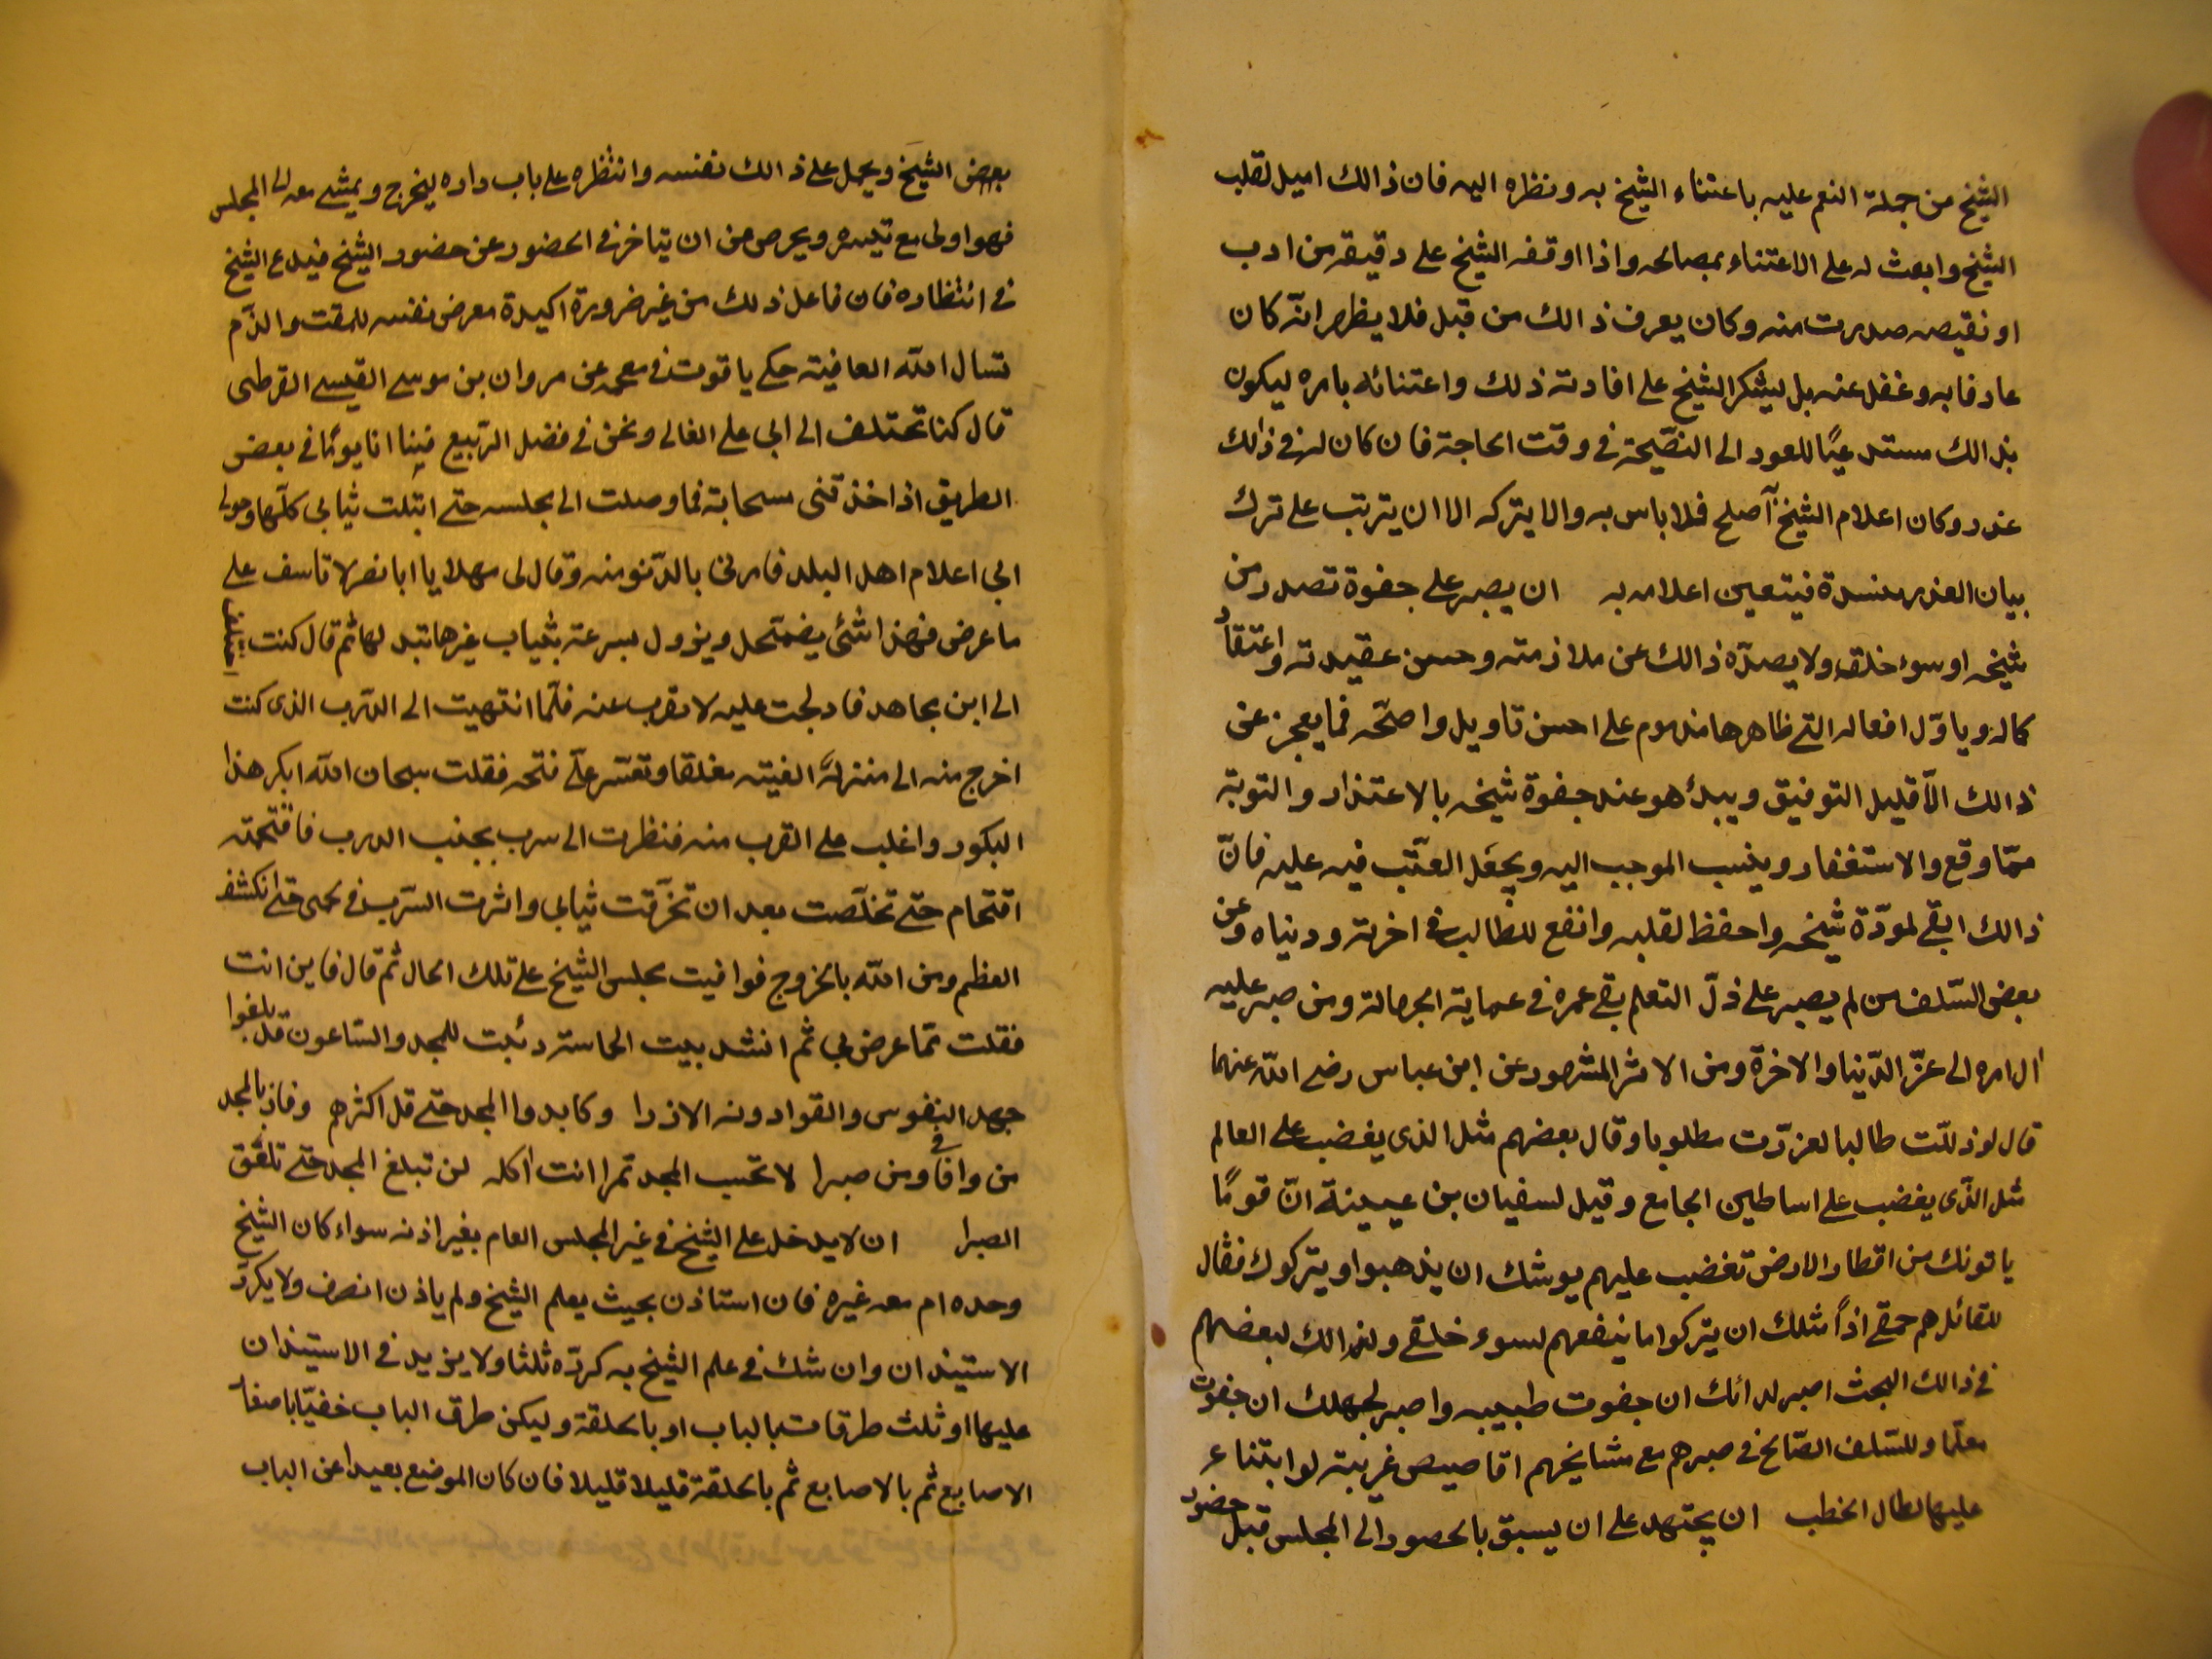 الشيخ من جملة النعم عليه باعتناء الشيخ به ونظره اليه فان ذالك اميل لقلب
الشيخ وابعث له على الاعتناء بمصالحه واذا اوقفه الشيخ على دقيقه من ادب
او نقيصه صدرت منه وكان يعرف ذالك من قبل فلا يظهر انّه كان
عارفا به وغفل عنه بل ليشكر الشيخ على افادته ذلك واعتنائه بامره ليكون
بذالك مستدعيًا للعود الى النصّيحة في وقت الحاجة فان كان له في ذالك
عذر وكان اعلام الشيخ اصلح فلا باس به والا يتركه الا ان يترتب على ترك
بيان العذر مفسدة فيتعين اعلامه به ان يصبر على جفوة تصدر من
شيخه او سوء خلقه ولا يصدّه ذالك عن ملازمته وحسن عقيدته واعتقاد
كماله وياوّل افعاله التي ظاهرها مذموم على احسن تاويل واصحّه فما يعجز عن
ذالك الّا قليل التوفيق ويبدأ هو عند جفوة شيخه بالاعتذار والتوبة
ممّا وقع والاستغفار وينسب الموجب اليه ويجعل العتب فيه عليه فانّ
ذالك ابقى لمودّة شيخه واحفظ لقلبه وانفع للطالب في اخرته ودنياه وعن
بعض السّلف من لم يصبر على ذلّ التعلم بقى عمره في عماية الجهالة ومن صبر عليه
ال امره الى عزّ الدّنيا والاخرة ومن الاثر المشهور عن ابن عباس رضى الله عنهما
قال لو ذللت طالبا لعززت مطلوبا وقال بعضهم مثل الذى يغضب على العالم
مثل الذّى يغضب على اساطين الجامع وقيل لسفيان بن عيينة انّ قومًا
ياتونك من اقطار الارض تغضب عليهم يوشك ان يذهبوا ويتركوك فقال
للقائل هم حمقى اذًا مثلك ان يتركوا ما ينفعهم لسوء خلقى ولذالك لبعضهم
في ذالك البحث اصبر لدائك ان جفوت طبيبه واصبر لجهلك ان جفوت
معلّما وللسّلف الصّالح في صبرهم مع مشايخهم اقاصيص غريبة لو ابتناء
عليها لطال الخطب ان يجتهد على ان يسبق بالحصور الى المجلس قبل حضور
بعض الشيخ ويحمل على ذالك نفسه وانتظره على باب داره ليخرج ويمشى معه الى المجلس
فهو اولى مع تيسره ويحرص من ان يتاخر في الحضور عن حضور الشيخ فيدع الشيخ
في انتظاره فان فاعل ذلك من غير ضرورة اكيدة معرض نفسه للمقت والذّم
نسال الله العافية حكى ياقوت في معجمه عن مروان بن موسى القيسى القرطبى
قال كنا نختلف الى ابى على الغالى ونحن في فضل الرّبيع فبينا انا يومًا في بعض
الطريق اذا خذتنى سحابة فما وصلت الى مجلسه حتى ابتلت ثيابى كلّها وحولى
ابى اعلام اهل البلد فامرنى بالدّنو منه وقال لى مهلا يا ابا نصر لا تاسف على
ما عرض فهذا شئى يضمحل ويزول بسرعة بثياب غيرها تبدلها ثم قال كنت اختلف
الى ابن مجاهد فادلجت عليه لاتقرب عنه فلمّا انتهيت الى الدّرب الذى كنت
اخرج منه الى منزله الفيته مغلقا وتعسّر علّى فتحه فقلت سبحان الله ابكر هذا
البكور واغلب على القرب منه فنظرت الى سرب بجنب الدرب فاقتحمته
اقتحام حتى تخلّصت بعد ان تخرّقت ثيابى واثرت السّرب في لحمى حتى انكشف
العظم ومن الله بالخروج فوافيت مجلس الشيخ على تلك الحال ثم قال فاين انت
فقلت ممّا عرض بى ثم انشد بيت الحماسة دئبت للمجد والسّاعون قد بلغوا
جهد النفوس والقوا دونه الازرا وكابدوا المجد حتى قل اكثرهم وفاز بالمجد
من وافى ومن صبرا لا تحسب المجد تمرا انت اكله لن تبلغ المجد حتى تلعق
الصبرا ان لا يدخل على الشيخ في غير المجلس العام بغير اذنه سواء كان الشيخ
وحده ام معه غيره فان استاذن بحيث يعلم الشيخ ولم ياذن انصرف ولا يكرّر
الاستيذان وان شك في علم الشيخ به كرّره ثلثا ولا يزيد في الاستيذان
عليها او ثلث طرقات بالباب او بالحلقة وليكن طرق الباب خفيّا باصفار
الاصابع ثم بالاصابع ثم بالحلقة قليلا قليلا فان كان الموضع بعيدا عن الباب